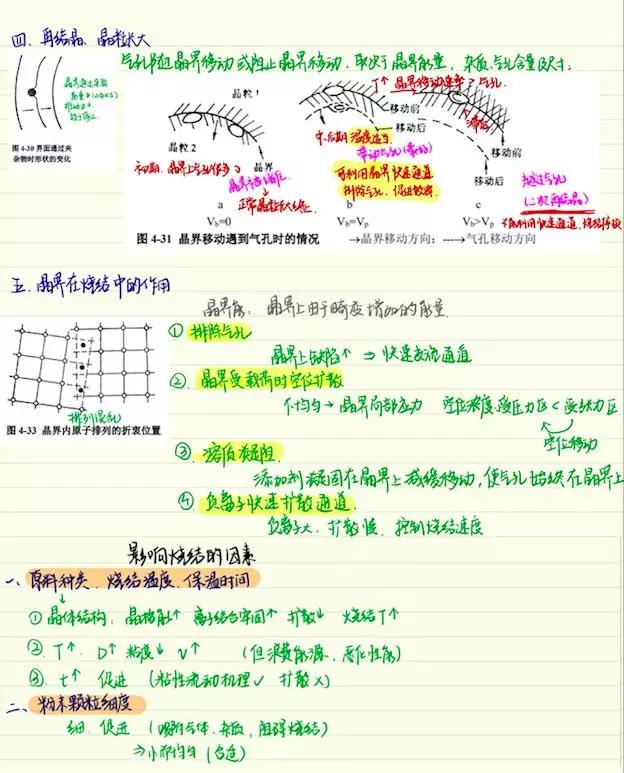 四、再结晶、晶粒长大
气孔随晶界移动或阻止晶界移动，取决于晶界能量，杂质、气孔含量及尺寸。
晶界通过杂质
图 4-30 界面通过夹
杂物时形状的变化
晶粒1
T↑ 晶界移动速率>气孔
移动前
移动后
晶粒 2
晶界
初期，晶界上气孔
中、后期 温度适当
带动气孔
可利用晶界快速通道
排除气孔，促进致密
移动前
移动后
越过气孔
(二次再结晶)
正常晶粒长大
a
b
c
V_b=0
V_b=V_p
V_b>V_p
不能利用快速通道，烧结停顿
图 4-31 晶界移动遇到气孔时的情况 →晶界移动方向；--→气孔移动方向
五、晶界在烧结中的作用
晶界能：晶界上由于畸变增加的能量
① 排除气孔
晶界上缺陷↑ ⇒ 快速交流通道
② 晶界受载荷时空位扩散
不均匀→晶界局部应力 空位浓度：受压力区<受张力区
空位移动
排列混乱
图 4-33 晶界内原子排列的折衷位置
③ 溶质凝阻
添加剂凝固在晶界上减缓移动，使气孔始终在晶界上
④ 负离子快速扩散通道
负离子大，扩散慢，控制烧结速度
影响烧结的因素
一、原料种类、烧结温度、保温时间
① 晶体结构：晶格能↑ 离子结合牢固↑ 扩散↓ 烧结T↑
② T↑ D↑ 粘度↓ v↑ (但浪费能源、恶化性能)
③ t↑ 促进 (粘性流动机理✓ 扩散×)
二、粉末颗粒细度
细 促进 (吸附气体、杂质，阻碍烧结)
⇒小而均匀 (合适)